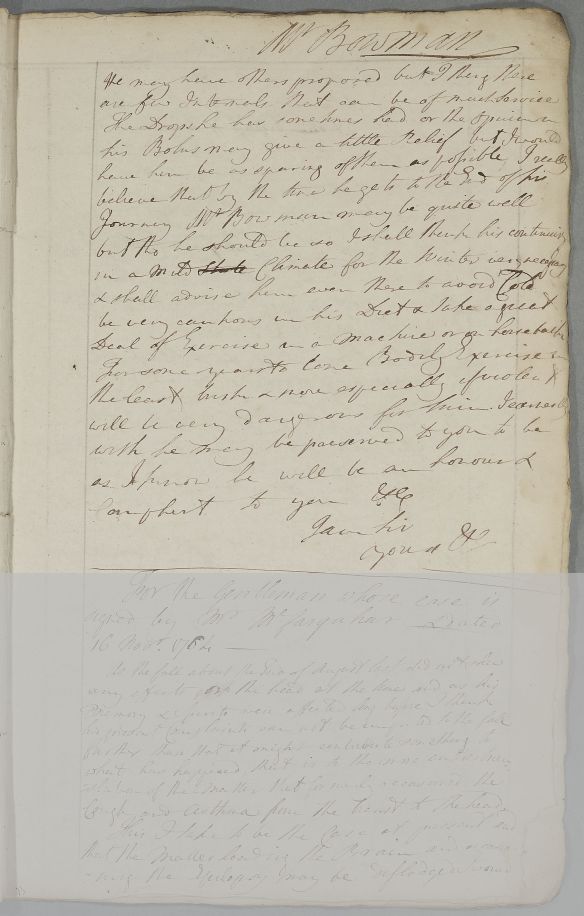 Mr Bowman
He may have others proposed but I think there
are few Internals that can be of much Service
The Drops he has sometimes had or the opium in
his Bolus may give a little Relief but I would
have him be as sparing of them as possible, I really
believe that by the time he gets to the End of his
Journey Mr Bowman may be quite well
but tho he should be so I shall think his continuing
in a mild State Climate for the Winter very necessary
& shall advise him even there to avoid Cold
be very cautious in his Diet & take a great
Deal of Exercise in a machine or on horseback
For some years to come Bodily Exercise in
the least & more especially if violent
will be very dangerous for him. I earnestly
wish he may be preserved to you to be
as I know he will be an honour &
Comfort to you &c
I am Sir
your &c
For the Gentleman whose case is
signed by Mr McFarquhar Dated
16 Novr. 1764
As the fall about the End of August last did not shew
any effects on the head at the time and as his
Memory & Spirits were affected long before I think
his present Complaints can not be imputed to the fall
further than that it might contribute something to
what has happened that is to the more
of the Matter that formerly occasioned the
Cough and Asthma from the breast to the head
This I take to be the Case at present and
that the Matter loading the Brain and
the Epilepsy may be dislodged